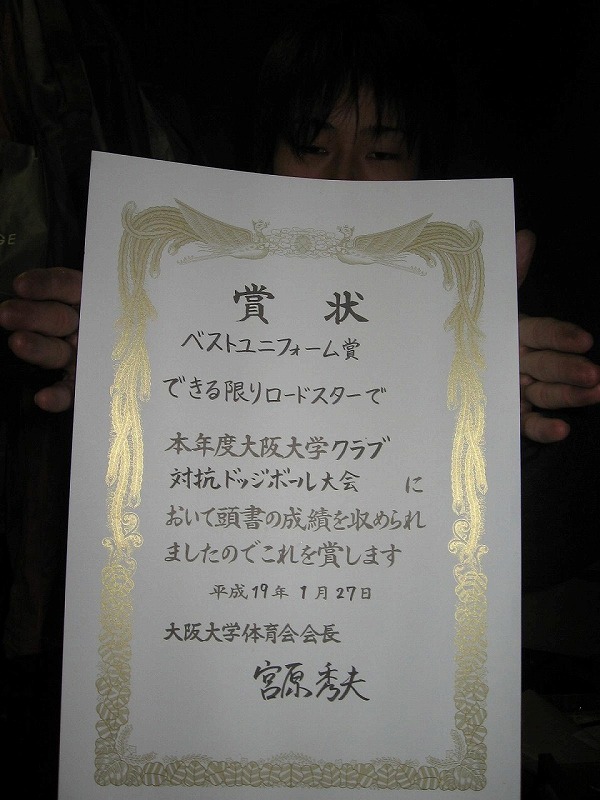 GE
賞状
ベストユニフォーム賞
できる限りロードスターで
本年度大阪大学クラブ
対抗ドッジボール大会 に
おいて頭書の成績を収められ
ましたのでこれを賞します
平成19年1月27日
大阪大学体育会会長
宮原秀夫